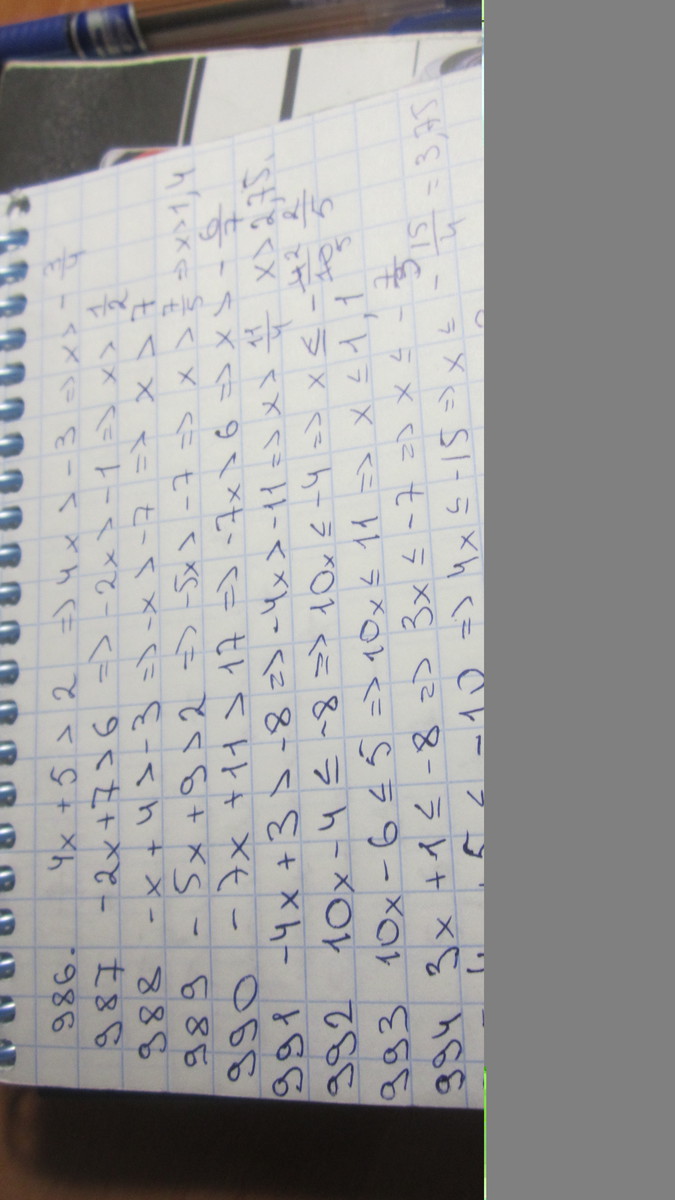 986. 4x + 5 > 2 => 4x > -3 => x > -3/4
987 -2x + 7 > 6 => -2x > -1 => x > 1/2
988 -x + 4 > -3 => -x > -7 => x > 7
989 -5x + 9 > 2 => -5x > -7 => x > 7/5 => x > 1,4
990 -7x + 11 > 17 => -7x > 6 => x > -6/7
991 -4x + 3 > -8 => -4x > -11 => x > 11/4 x > 2,75.
992 10x - 4 ≤ -8 => 10x ≤ -4 => x ≤ -4/10 2/5
993 10x - 6 ≤ 5 => 10x ≤ 11 => x ≤ 1,1
994 3x + 1 ≤ -8 => 3x ≤ -7 => x ≤ -7/3
≤ -10 => 4x ≤ -15 => x ≤ -15/4 = 3,75